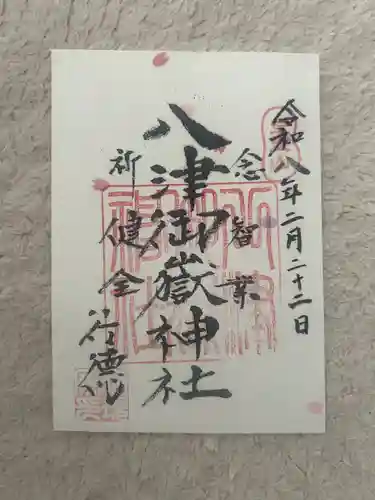 令和八年二月二十二日
念智業
八津御嶽神社
祈健全